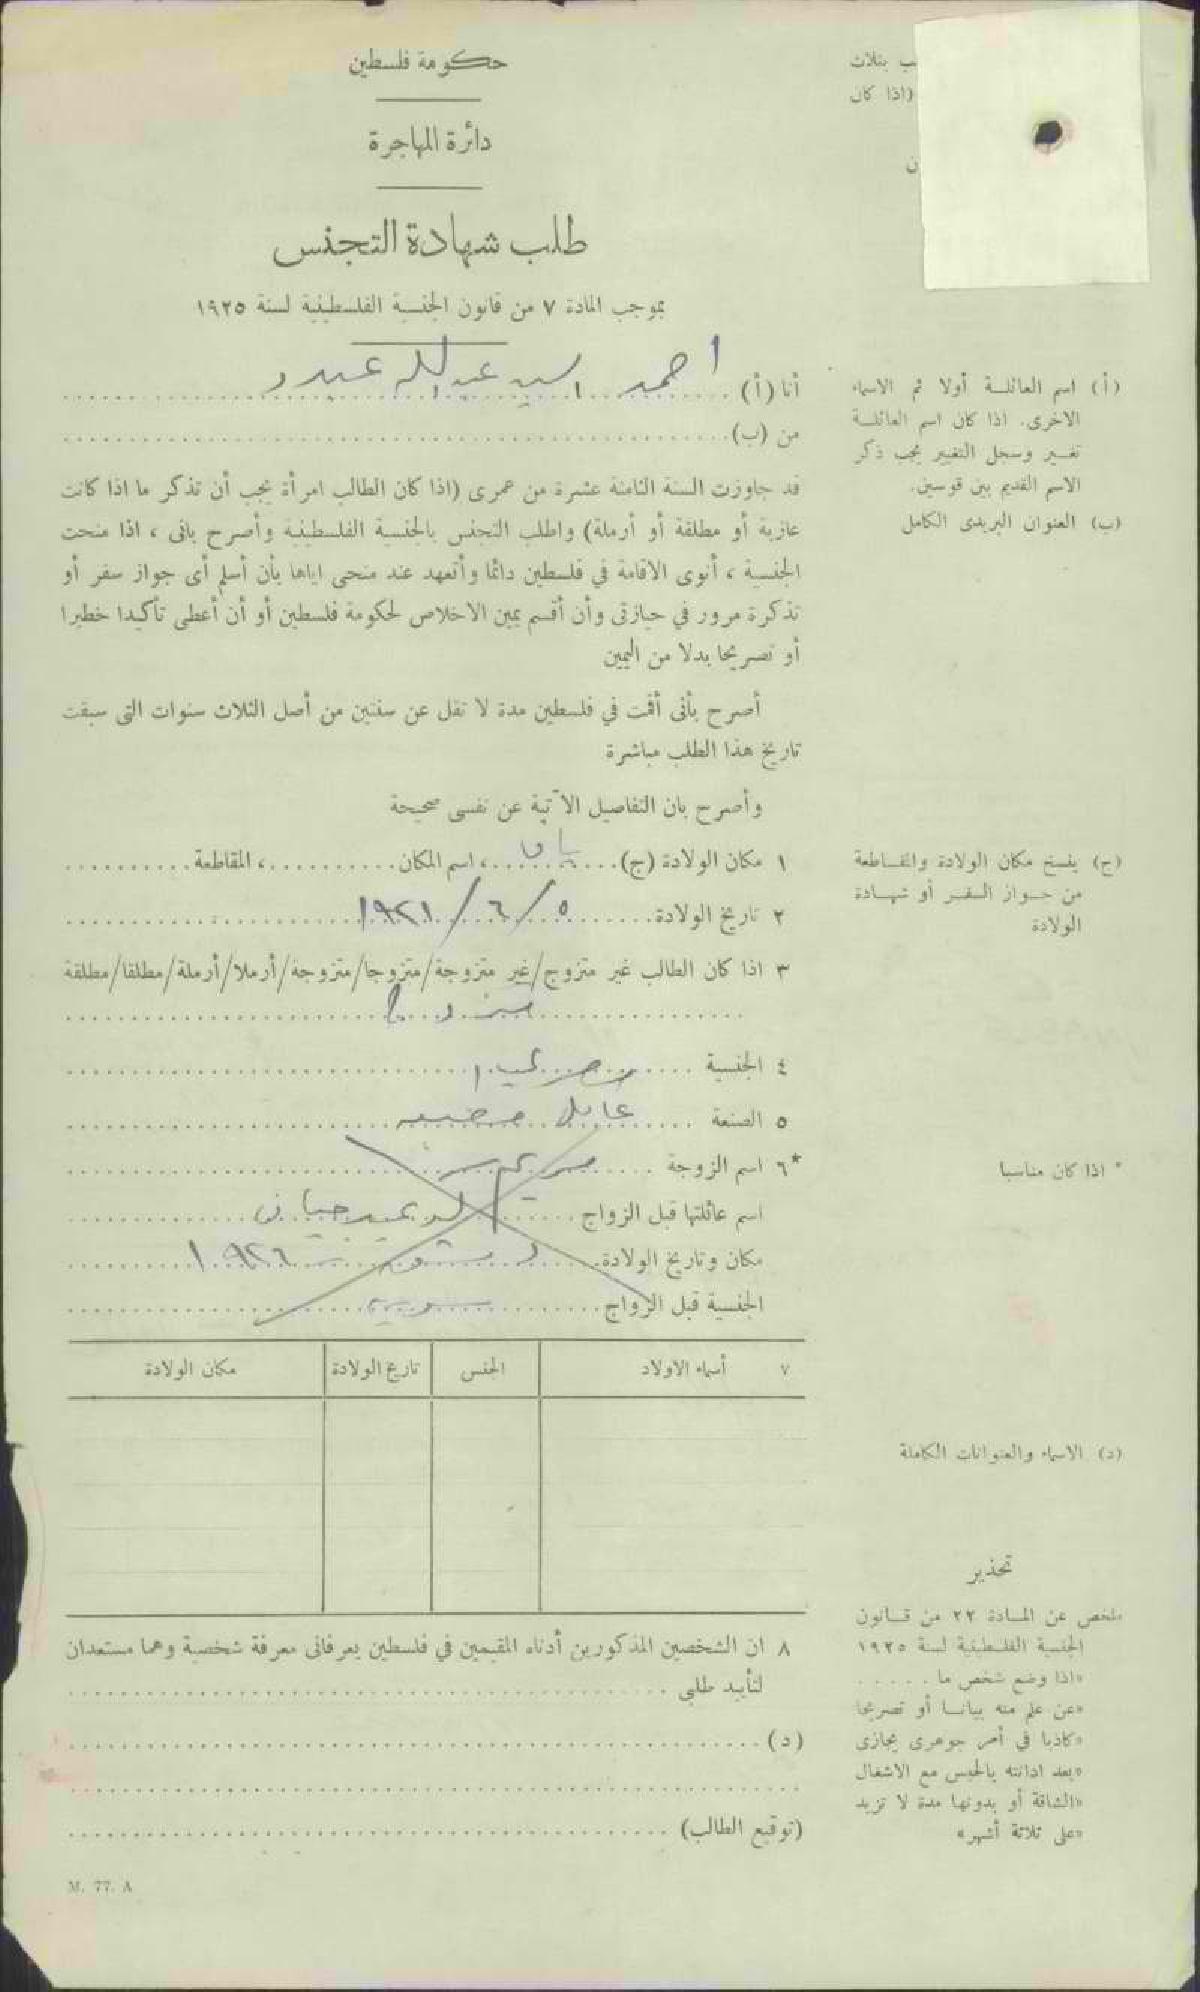 حكومة فلسطين
دائرة المهاجرة
طلب شهادة التجنس
بموجب المادة ٧ من قانون الجنسية الفلسطينية لسنة ١٩٢٥
ب بثلاث
(اذا كان
ن
أنا (أ) احمد السيد عبد الله عبدو
من (ب)
قد جاوزت السنة الثامنة عشرة من عمرى (اذا كان الطالب امرأة يجب أن تذكر ما اذا كانت
عازبة أو مطلقة أو أرملة) واطلب التجنس بالجنسية الفلسطينية وأصرح بانى ، اذا منحت
الجنسية ، أنوى الاقامة في فلسطين دائما وأتعهد عند منحى اياها بأن أسلم أى جواز سفر أو
تذكرة مرور في حيازتى وأن أقسم يمين الاخلاص لحكومة فلسطين أو أن أعطى تأكيدا خطيرا
أو تصريحا بدلا من اليمين
أصرح بأنى أقمت في فلسطين مدة لا تقل عن سنتين من أصل الثلاث سنوات التى سبقت
تاريخ هذا الطلب مباشرة
وأصرح بان التفاصيل الآتية عن نفسى صحيحة
١ مكان الولادة (ج) يافا ، اسم المكان ، المقاطعة
٢ تاريخ الولادة ٥/٦/١٩٢١
٣ اذا كان الطالب غير متزوج/غير متزوجة/متزوجا/متزوجة/أرملا/أرملة/مطلقا/مطلقة
متزوج
٤ الجنسية
٥ الصنعة عامل
*٦ اسم الزوجة مريم
اسم عائلتها قبل الزواج
مكان وتاريخ الولادة دمشق ١٩٢٦
الجنسية قبل الزواج سوريه
٧ أسماء الاولاد الجنس تاريخ الولادة مكان الولادة
٨ ان الشخصين المذكورين أدناه المقيمين في فلسطين يعرفانى معرفة شخصية وهما مستعدان
لتأييد طلبى
(د)
(توقيع الطالب)
M. 77. A
(أ) اسم العائلة أولا ثم الاسماء
الاخرى. اذا كان اسم العائلة
تغير وسجل التغيير يجب ذكر
الاسم القديم بين قوسين.
(ب) العنوان البريدى الكامل
(ج) ينسخ مكان الولادة والمقاطعة
من جواز السفر أو شهادة
الولادة
* اذا كان مناسبا
(د) الاسماء والعنوانات الكاملة
تحذير
ملخص عن المادة ٢٢ من قانون
الجنسية الفلسطينية لسنة ١٩٢٥
«اذا وضع شخص ما
«عن علم منه بيانا أو تصريحا
«كاذبا في أمر جوهرى يجازى
«بعد ادانته بالحبس مع الاشغال
«الشاقة أو بدونها مدة لا تزيد
«على ثلاثة أشهر»